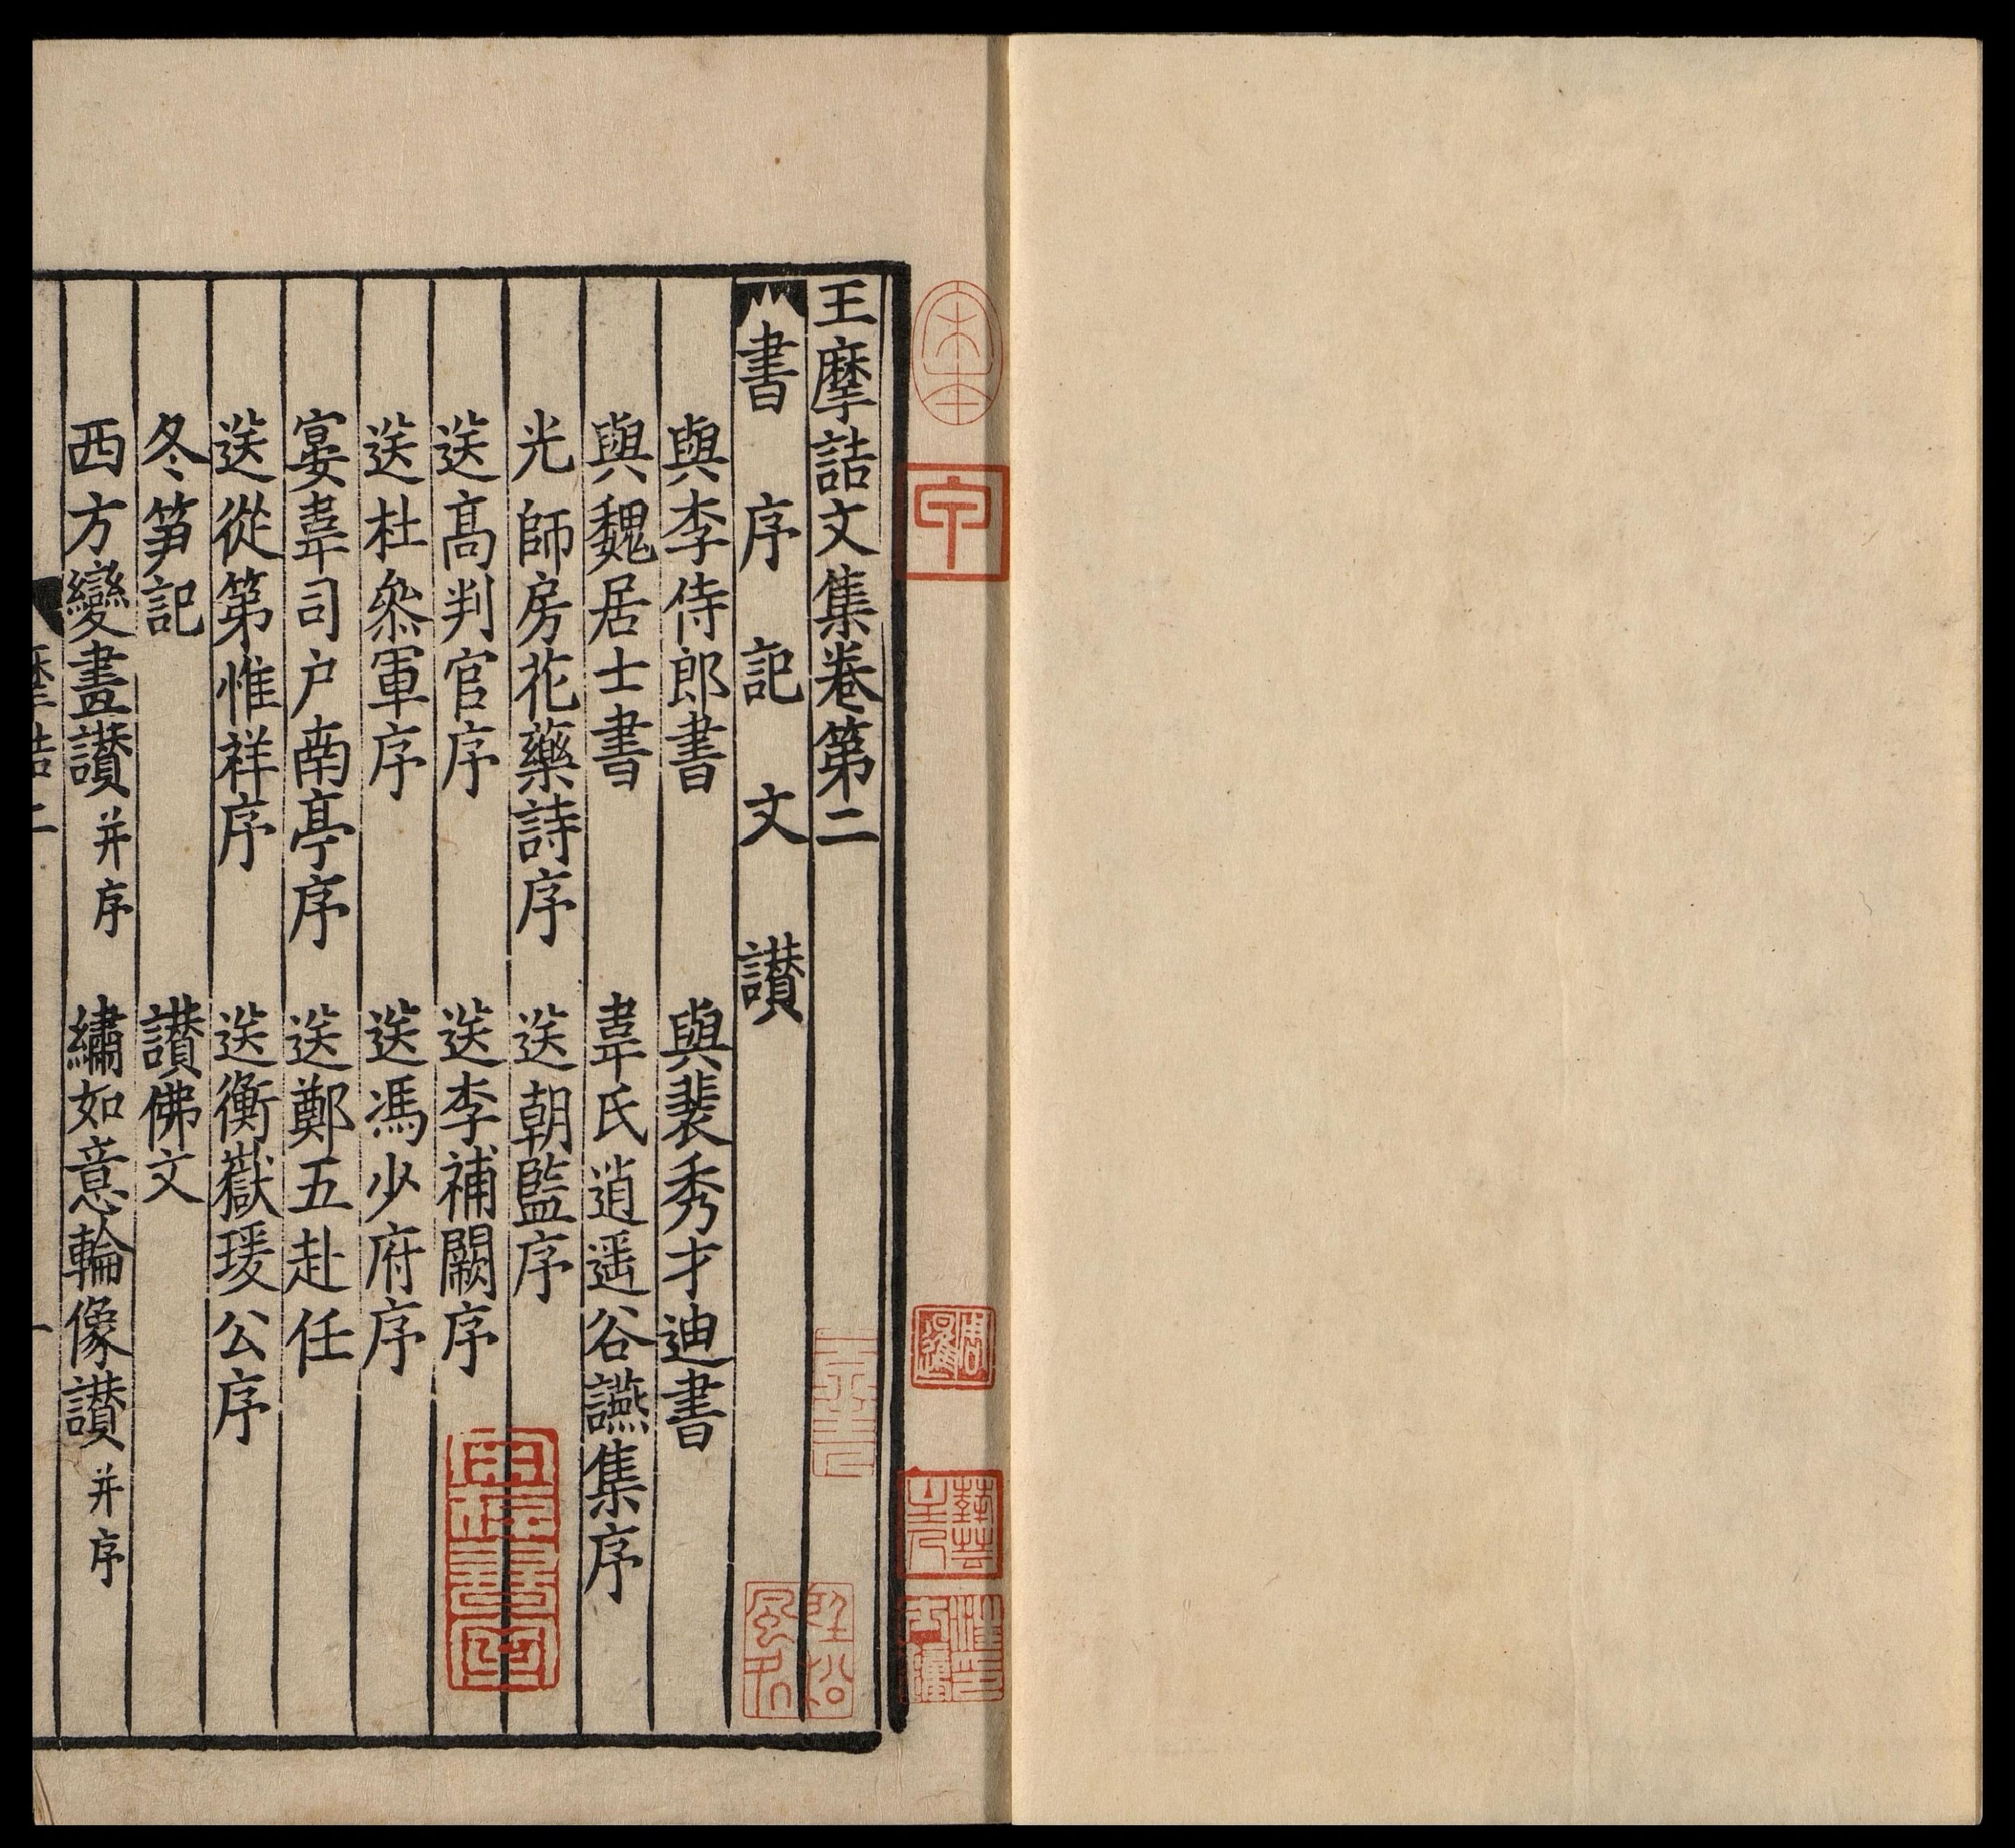 王摩詰文集卷第二
書 序 記 文 讃
與李侍郎書 與裴秀才迪書
與魏居士書 韋氏逍遥谷讌集序
光師房花藥詩序 送朝監序
送髙判官序 送李補闕序
送杜叅軍序 送馮少府序
宴韋司户南亭序 送鄭五赴任
送從第惟祥序 送衡嶽瑗公序
冬笋記 讃佛文
西方變畫讃并序 繡如意輪像讃并序
宋本
甲